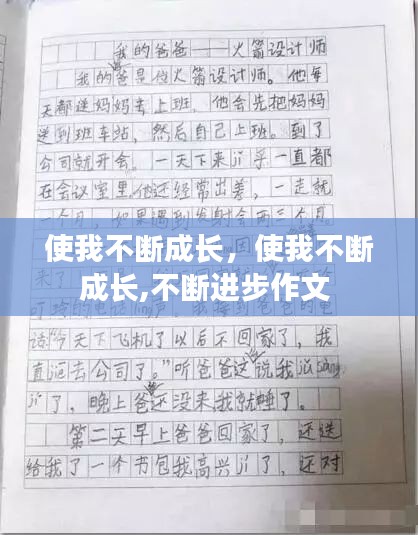 我的爸爸——火箭设计师
我的爸是位火箭设计师。他每
天都送妈妈去上班，他会先把妈妈
送到班车站，然后自己上班。到了
公司就开会，一天下来几乎一直都
在会议室里。他还经常出差，一走就
使我不断成长，使我不断
成长,不断进步作文
话：今天下飞机了以后不回家了，我
直接去公司了。”听爸爸这说我
了，晚上爸还没来我就睡了。
第二天早上爸爸回家了，还送
给我了一个书包我高兴了，还对